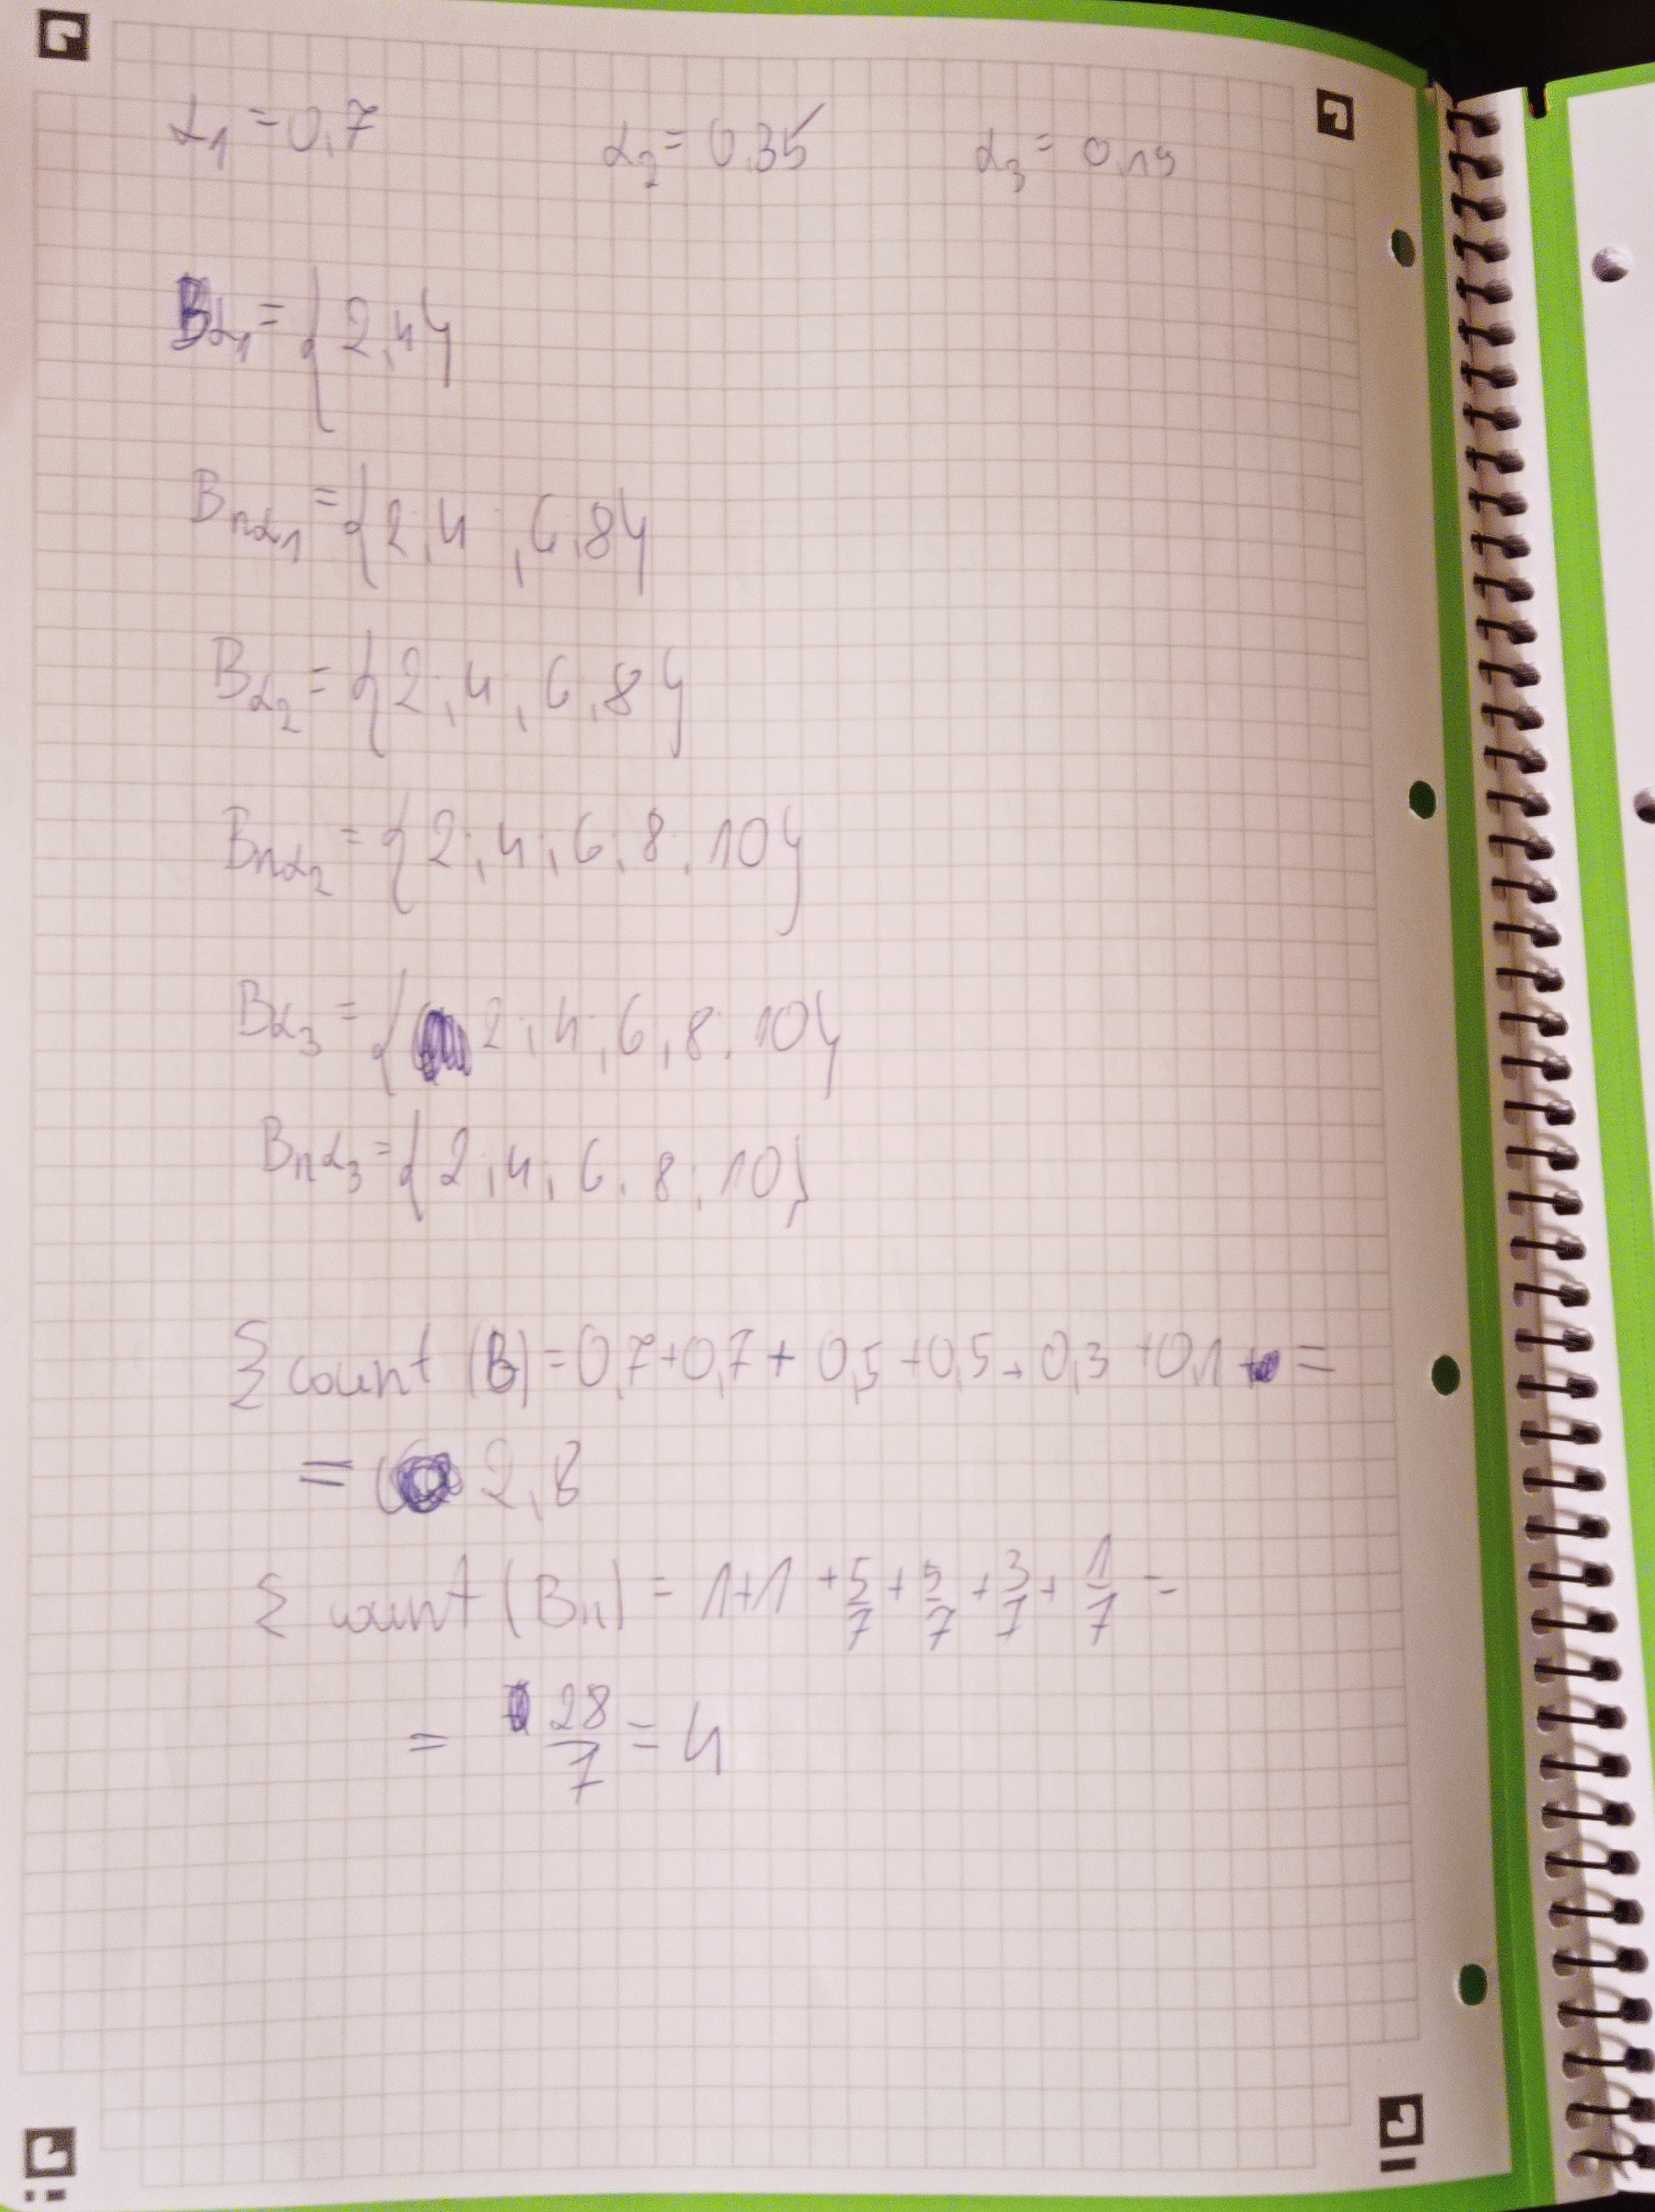 α₁ = 0,7 α₂ = 0,35 α₃ = 0,19
Bα₁ = {2, 4}
Bnα₁ = {2, 4, 6, 8}
Bα₂ = {2; 4, 6, 8}
Bnα₂ = {2; 4; 6, 8; 10}
Bα₃ = { 2; 4; 6, 8; 10}
Bnα₃ = {2; 4; 6; 8; 10}
Σ count (B) = 0,7 + 0,7 + 0,5 + 0,5 + 0,3 + 0,1 =
= 2,8
Σ count (Bn) = 1 + 1 + 5/7 + 5/7 + 3/7 + 1/7 =
= 28/7 = 4